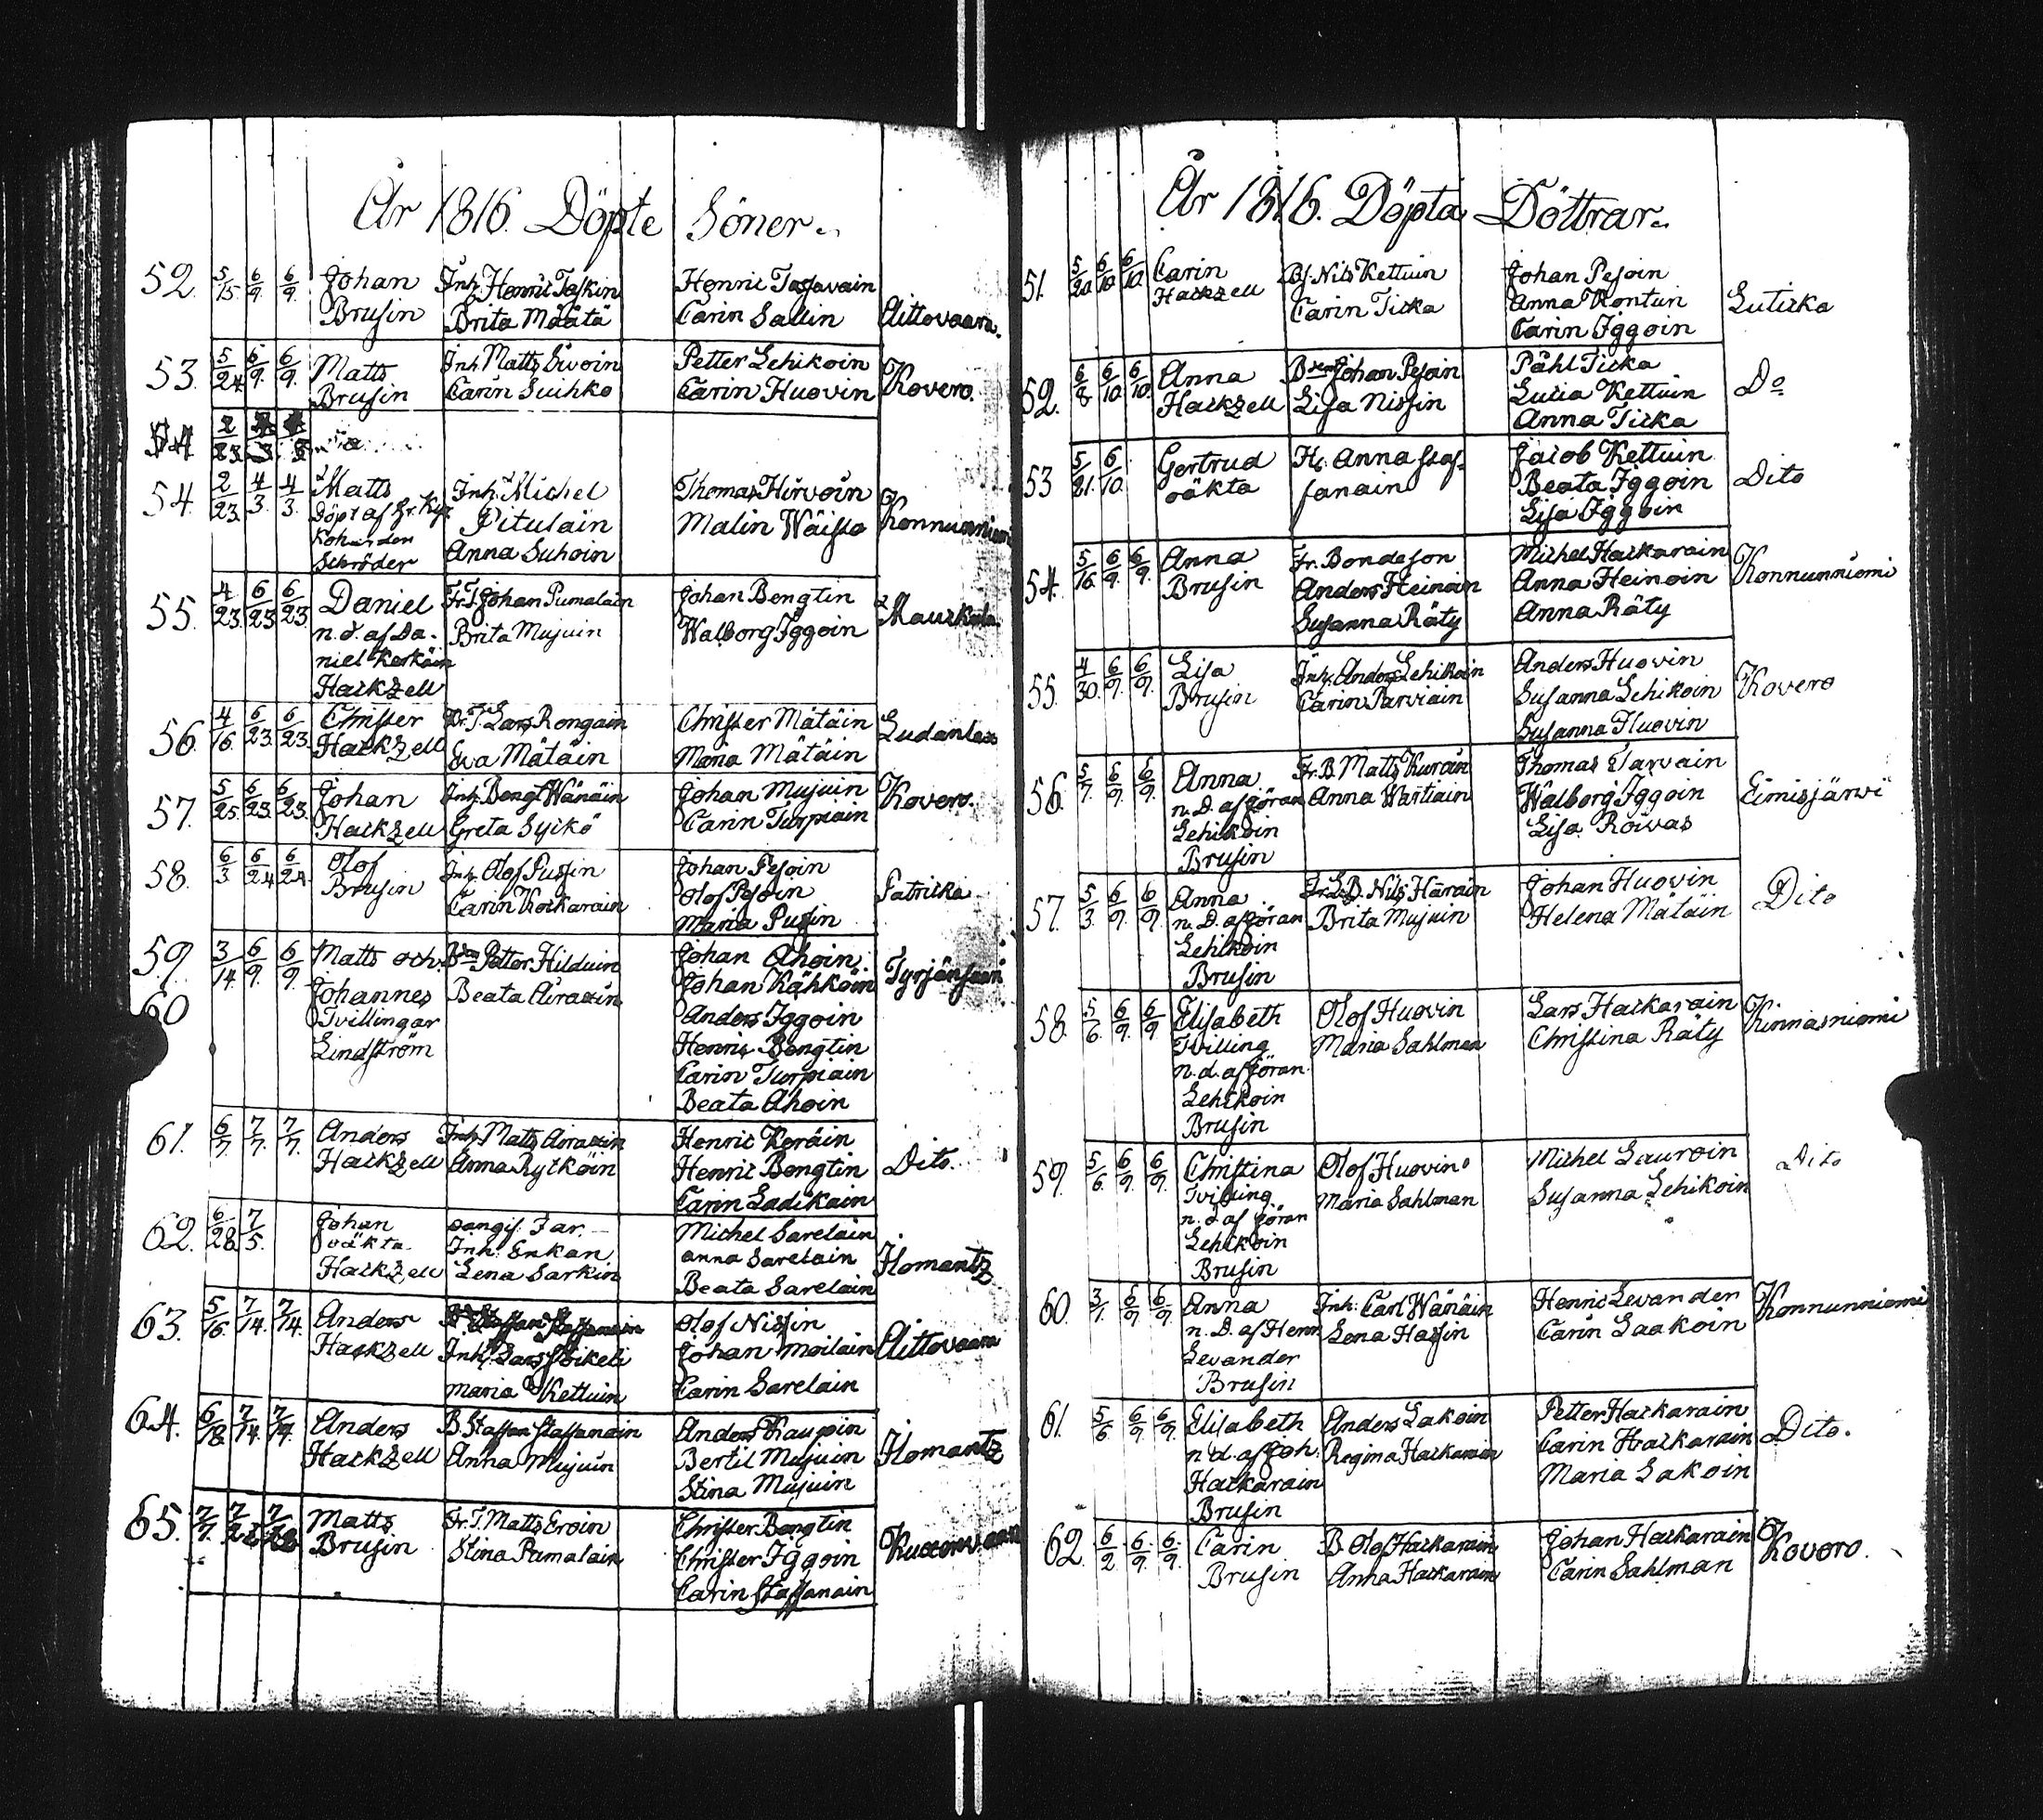 År 1816. Döpte Söner.
52. 5/15. 6/9. 6/9. Johan Inh. Henric Taskin Henric Tassavain
Brusin Brita Määtä Carin Sallin Aittovaara.
53. 5/24. 6/9. 6/9. Matts Inh. Matts Sivoin Petter Lehikoin Kovero.
Brusin Carin Suihko Carin Huovin
54 2/23.
54. 2/23. 4/3. 4/3. Matts Inh. Michel Thomas Hirvoin
Döpt af Hr. Kyr Pitulain Malin Wäisä Konnunniemi
koherden
Schröder Anna Suhoin
55. 4/23. 6/23. 6/23. Daniel Fr. T. Johan Pumalain Johan Bengtin
n. d. af Da- Brita Mujuin Walborg Iggoin
niel Keskäin
Hackzell
56. 4/16. 6/23. 6/23. Christer Fr. T. Lars Rongain Christer Mätäin Ludanlax
Hackzell Eva Mätäin Maria Mätäin
57. 5/25. 6/23. 6/23. Johan Inh. Bengt Wänäin Johan Mujuin Kovero.
Hackzell Greta Syikö Carin Turpiain
58. 6/3 6/24 6/24. Olof Inh. Olof Pussin Johan Pesoin
Brusin Carin Kockarain Olof Pesoin Patricka
Maria Pussin
59. 3/14 6/9. 6/9. Matts och Petter Hilduin Johan Ahoin
60 Johannes Beata Airaxin Johan Kähköin
Tvillingar Anders Iggoin
Lindström Henric Bengtin
Carin Turpiain
Beata Ahoin
61. 6/7. 7/7. 7/7. Anders Inh. Matts Airaxin Henric Keräin
Hackzell Anna Rytköin Henric Bengtin Dito.
Carin Ladikain
62. 6/28. 7/5. Johan Michel Sarelain
oäkta Inh. Enkan anna Sarelain
Hackzell Lena Sarkin Beata Sarelain Ilomantz
63. 5/16. 7/14. 7/14. Anders Olof Nissin
Hackzell Inh. Lars Johan Moilain Aittovaara
Maria Kettuin Carin Sarelain
64. 6/18. 7/14. 7/14. Anders B. Staffan Staffanain Anders Kaupin
Hackzell Anna Mujuin Bertil Mujuin Ilomantz
Stina Mujuin
65. 7/7. Matts Fr. T. Matts Eroin Christer Bengtin
Brusin Stina Pamalain Christer Iggoin
Carin Staffanain
År 1816. Döpta Döttrar.
51. 5/20. 6/10. 6/10. Carin Bs. Nils Kettuin Johan Pesoin
Hackzell Carin Ticka Anna Kontuin Luticka
Carin Iggoin
52. 6/8. 6/10. 6/10. Anna Johan Pesoin Påhl Ticka
Hackzell Lisa Nissin Lucia Kettuin Do
Anna Ticka
53 5/21. 6/10. Gertrud H. Anna Staf- Jacob Kettuin
oäkta fanain Beata Iggoin Dito
Lisa Iggoin
54. 5/16. 6/9. 6/9. Anna Fr. Bondeson Michel Hackarain
Brusin Anders Heinoin Anna Heinoin Konnunniemi
Susanna Räty Anna Räty
55. 4/30. 6/9. 6/9. Lisa Inh. Anders Lehikoin Anders Huovin
Brusin Carin Parviain Susanna Lehikoin Kovero
Susanna Huovin
56. 5/7. 6/9. 6/9. Anna Fr. B. Matts Kurain Thomas Tarvain
n. D. af Göran Anna Wartiain Walborg Iggoin Eimisjärvi
Lehikoin Lisa Roivas
Brusin
57. 5/3. 6/9. 6/9. Anna Nils Harain Johan Huovin
n. D. af Göran Brita Mujuin Helena Mätäin Dito
Lehikoin
Brusin
58. 5/6. 6/9. 6/9. Elisabeth Olof Huovin Lars Hackarain
Tvilling Maria Sahlman Christina Räty Kinnasniemi
n. d. af Göran
Lehikoin
Brusin
59. 5/6. 6/9. 6/9. Christina Olof Huovin Michel Lauroin Dito
Tvilling Maria Sahlman Susanna Lehikoin
n. d. af Göran
Lehikoin
Brusin
60. 3/1. 6/9. 6/9. Anna Inh: Carl Wänäin Henric Levander Konnunniemi
n. D. af Henr Lena Hassin Carin Laakoin
Levander
Brusin
61. 5/6. 6/9. 6/9. Elisabeth Anders Lakoin Petter Hackarain
n. d. af Joh. Regina Hackarain Carin Hackarain Dito.
Hackarain Maria Lakoin
Brusin
62. 6/2. 6/9. 6/9. Carin B. Olof Hackarain Johan Hackarain
Brusin Anna Hackarain Carin Sahlman Kovero.